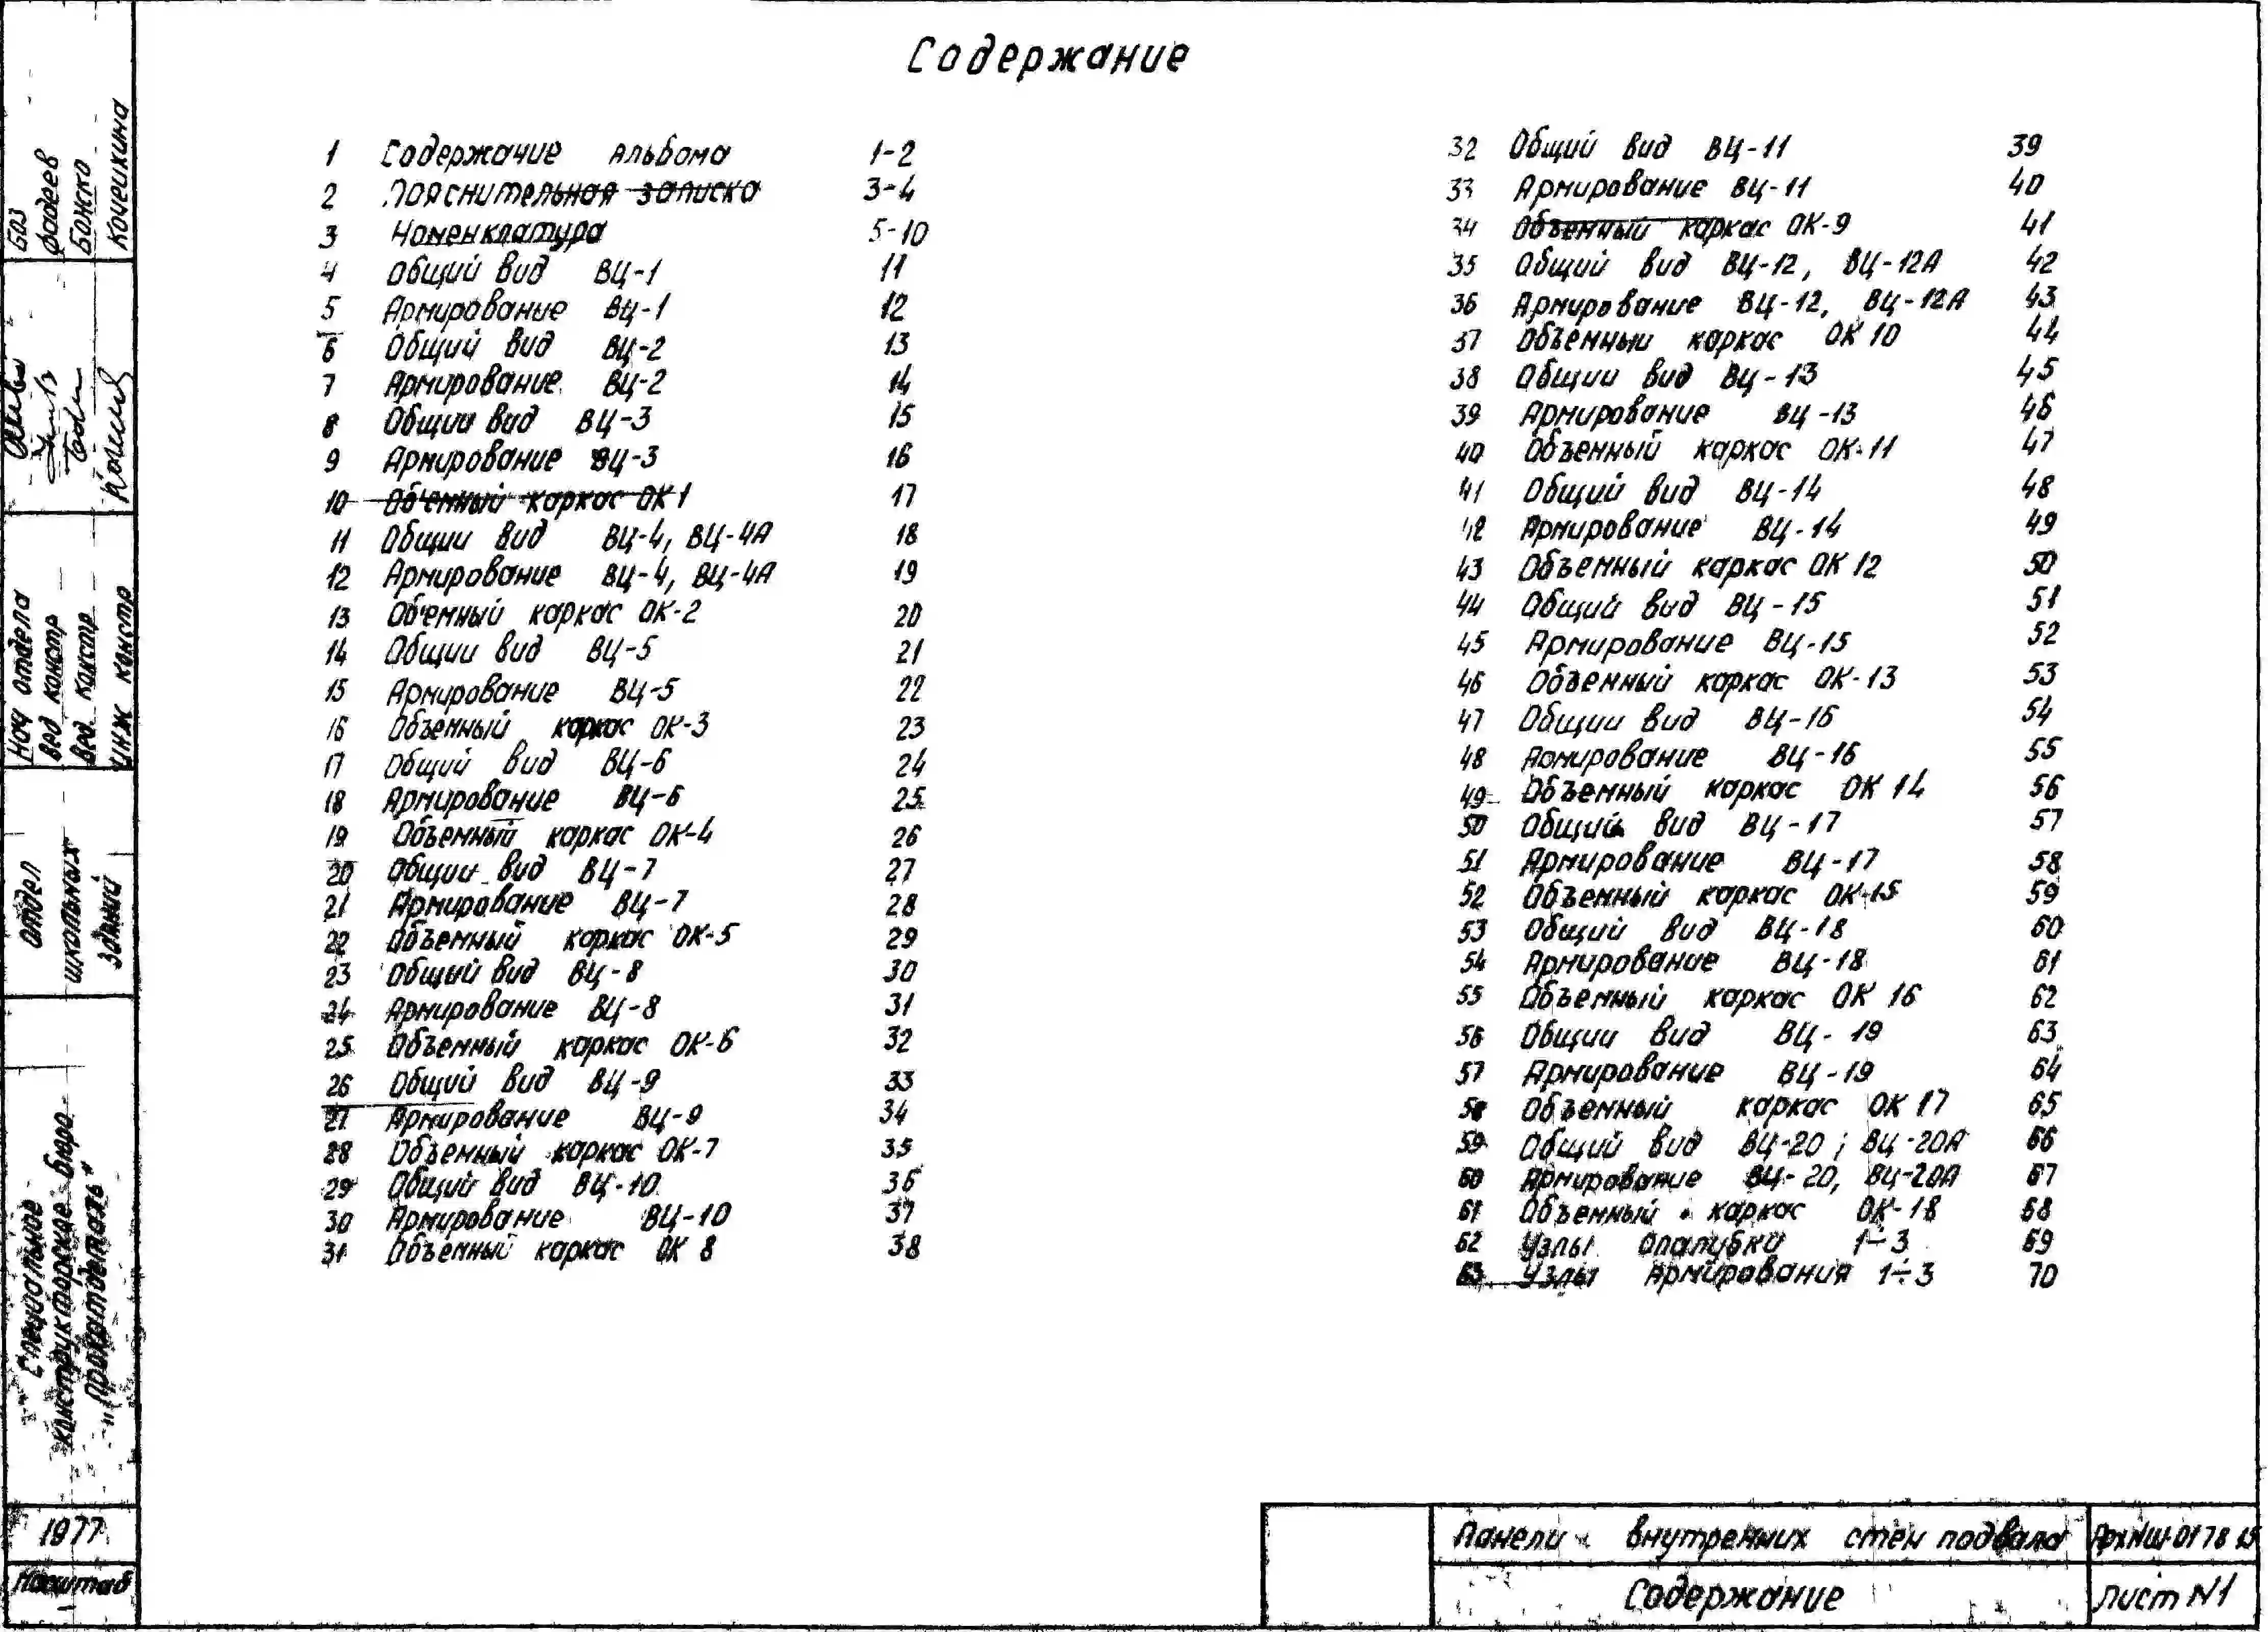 Содержание
1 Содержание альбома 1-2
2 Пояснительная записка 3-4
3 Номенклатура 5-10
4 Общий вид ВЦ-1 11
5 Армирование ВЦ-1 12
6 Общий вид ВЦ-2 13
7 Армирование ВЦ-2 14
8 Общий вид ВЦ-3 15
9 Армирование ВЦ-3 16
10 Об'емный каркас ОК1 17
11 Общий вид ВЦ-4, ВЦ-4А 18
12 Армирование ВЦ-4, ВЦ-4А 19
13 Об'емный каркас ОК-2 20
14 Общий вид ВЦ-5 21
15 Армирование ВЦ-5 22
16 Объемный каркас ОК-3 23
17 Общий вид ВЦ-6 24
18 Армирование ВЦ-6 25
19 Объемный каркас ОК-4 26
20 Общий вид ВЦ-7 27
21 Армирование ВЦ-7 28
22 Объемный каркас ОК-5 29
23 Общий вид ВЦ-8 30
24 Армирование ВЦ-8 31
25 Объемный каркас ОК-6 32
26 Общий вид ВЦ-9 33
27 Армирование ВЦ-9 34
28 Объемный каркас ОК-7 35
29 Общий вид ВЦ-10 36
30 Армирование ВЦ-10 37
31 Объемный каркас ОК 8 38
32 Общий вид ВЦ-11 39
33 Армирование ВЦ-11 40
34 Объемный каркас ОК-9 41
35 Общий вид ВЦ-12, ВЦ-12А 42
36 Армирование ВЦ-12, ВЦ-12А 43
37 Объемный каркас ОК 10 44
38 Общий вид ВЦ-13 45
39 Армирование ВЦ-13 46
40 Объемный каркас ОК-11 47
41 Общий вид ВЦ-14 48
42 Армирование ВЦ-14 49
43 Объемный каркас ОК 12 50
44 Общий вид ВЦ-15 51
45 Армирование ВЦ-15 52
46 Объемный каркас ОК-13 53
47 Общий вид ВЦ-16 54
48 Армирование ВЦ-16 55
49 Объемный каркас ОК 14 56
50 Общий вид ВЦ-17 57
51 Армирование ВЦ-17 58
52 Объемный каркас ОК-15 59
53 Общий вид ВЦ-18 60
54 Армирование ВЦ-18 61
55 Объемный каркас ОК 16 62
56 Общий вид ВЦ-19 63
57 Армирование ВЦ-19 64
58 Объемный каркас ОК 17 65
59 Общий вид ВЦ-20; ВЦ-20А 66
60 Армирование ВЦ-20, ВЦ-20А 67
61 Объемный каркас ОК-18 68
62 Узлы опалубки 1÷3 69
63 Узлы армирования 1÷3 70
Фадеев
Божко
Кочешкина
Нач отдела
вед констр
вед. констр
инж констр
отдел
школьных
зданий
Специальное
конструкторское бюро
"Прокатдеталь"
1977
Масштаб
Панели внутренних стен подвала
Содержание
Лист N1